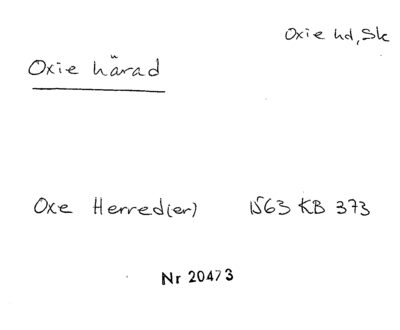 Oxie hd, Sk
Oxie härad
Oxe Herred(er) 1563 KB 373
Nr 20473